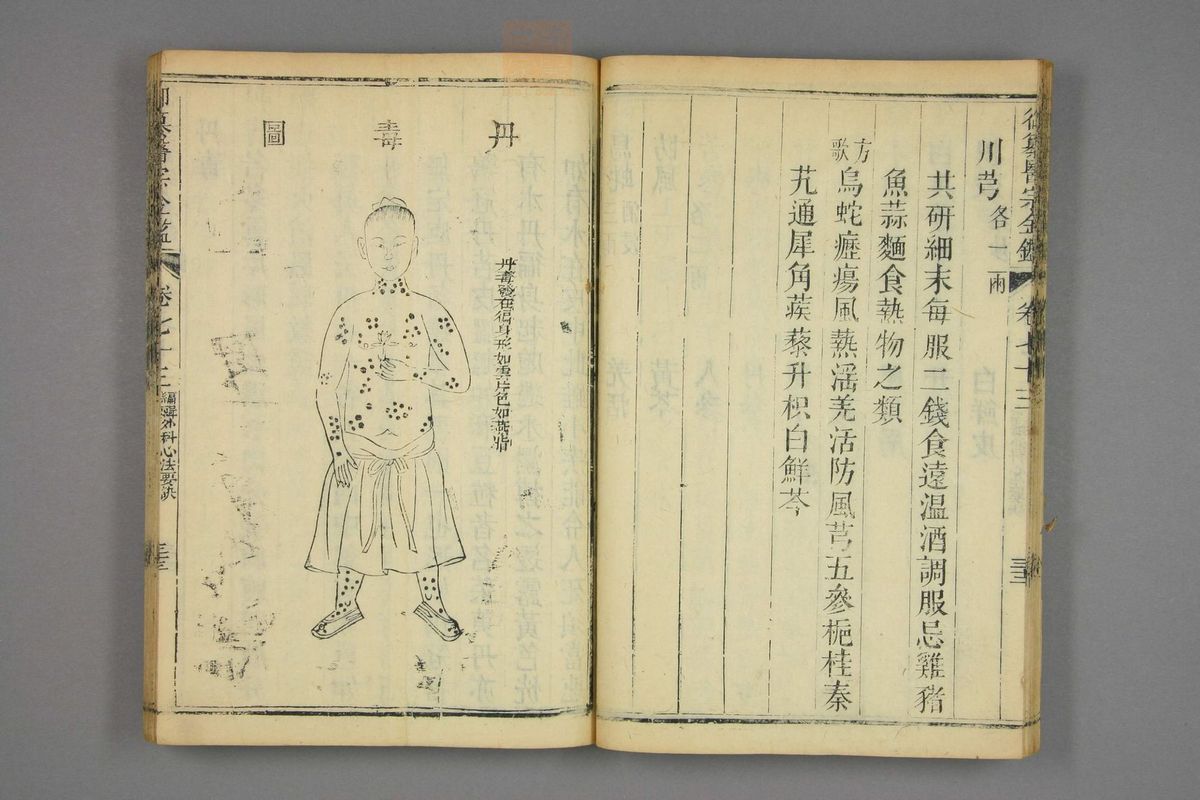 御纂醫宗金鑑 卷七十三 三三
川芎各一兩
共研細末每服二錢食遠溫酒調服忌雞猪
魚蒜麵食熱物之類
方歌 烏蛇癧瘍風熱溼羌活防風芎五參梔桂秦
艽通犀角蒺藜升枳白鮮芩
丹毒圖
丹毒發在徧身形如雲片色如燕脂
御纂醫宗金鑑 卷七十三 編輯外科心法要訣 三三